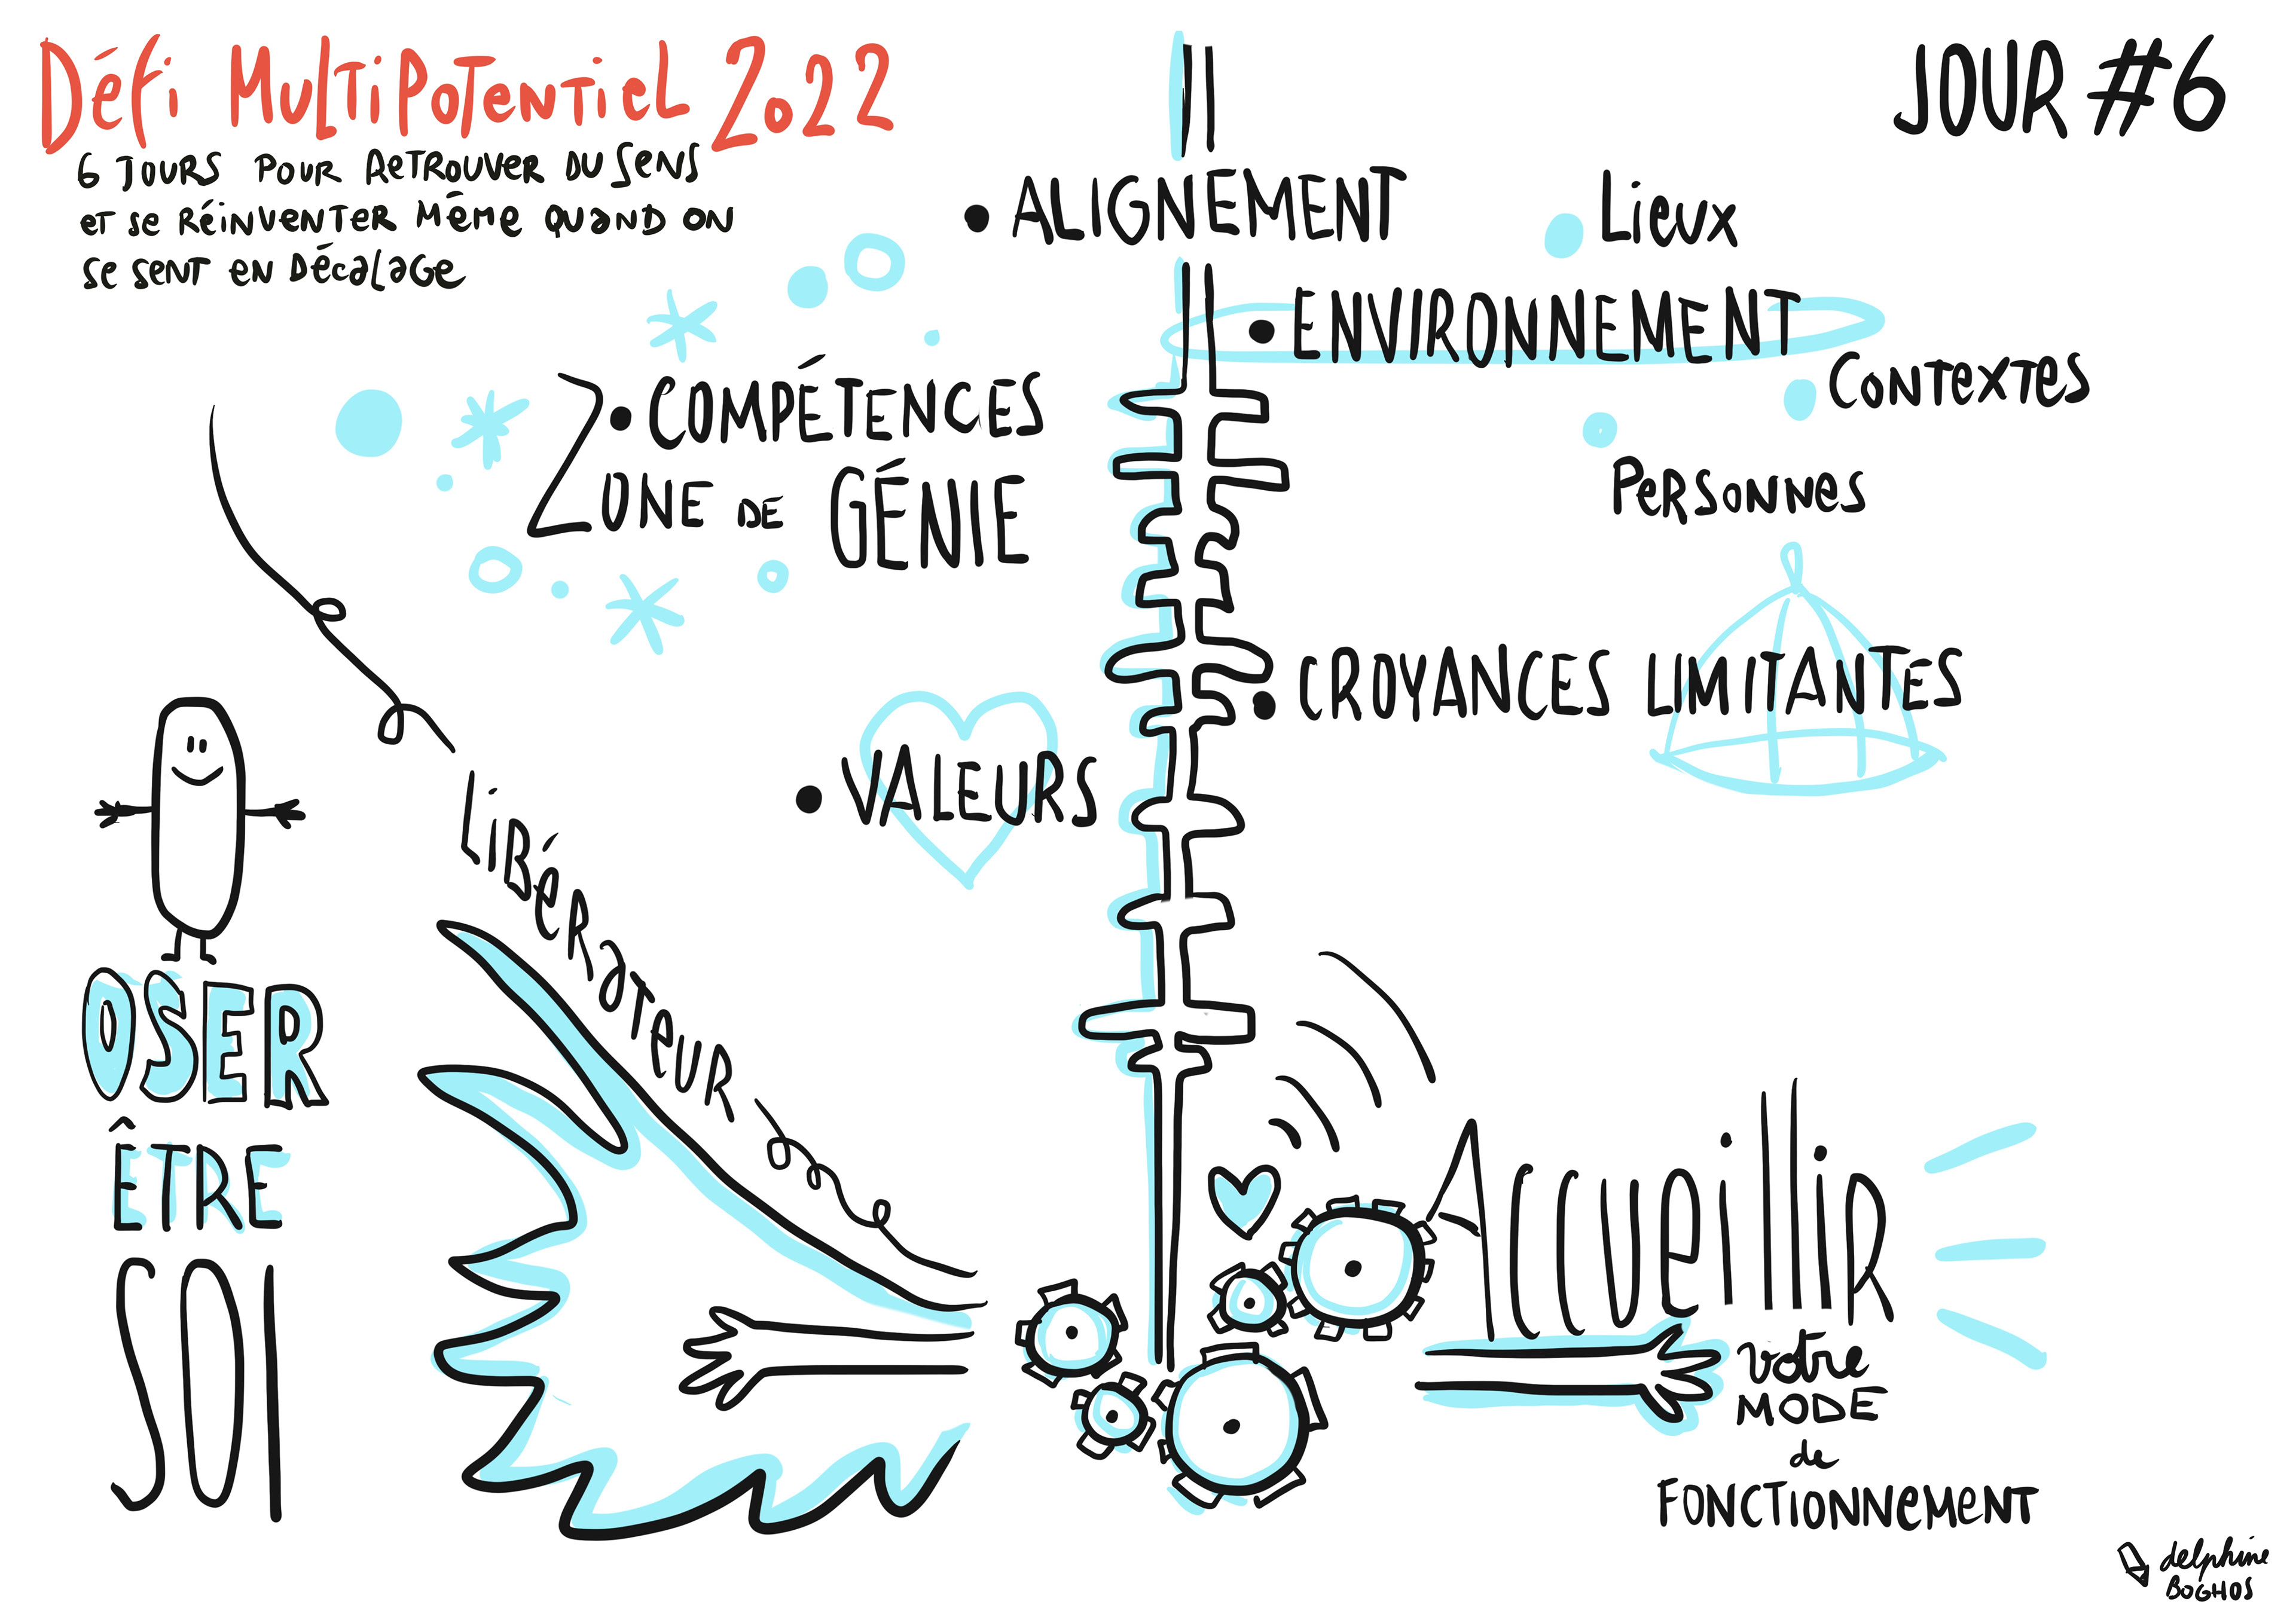 Défi Multipotentiel 2022
6 jours pour retrouver du sens
et se réinventer même quand on
se sent en décalage
JOUR #6
• ALIGNEMENT
Lieux
• ENVIRONNEMENT
Contextes
Personnes
• COMPÉTENCES
ZONE DE GÉNIE
• CROYANCES LIMITANTES
• VALEURS
Libérateur
OSER
ÊTRE
SOI
Accueillir
votre
MODE
de
FONCTIONNEMENT
delphine
BOGHOS